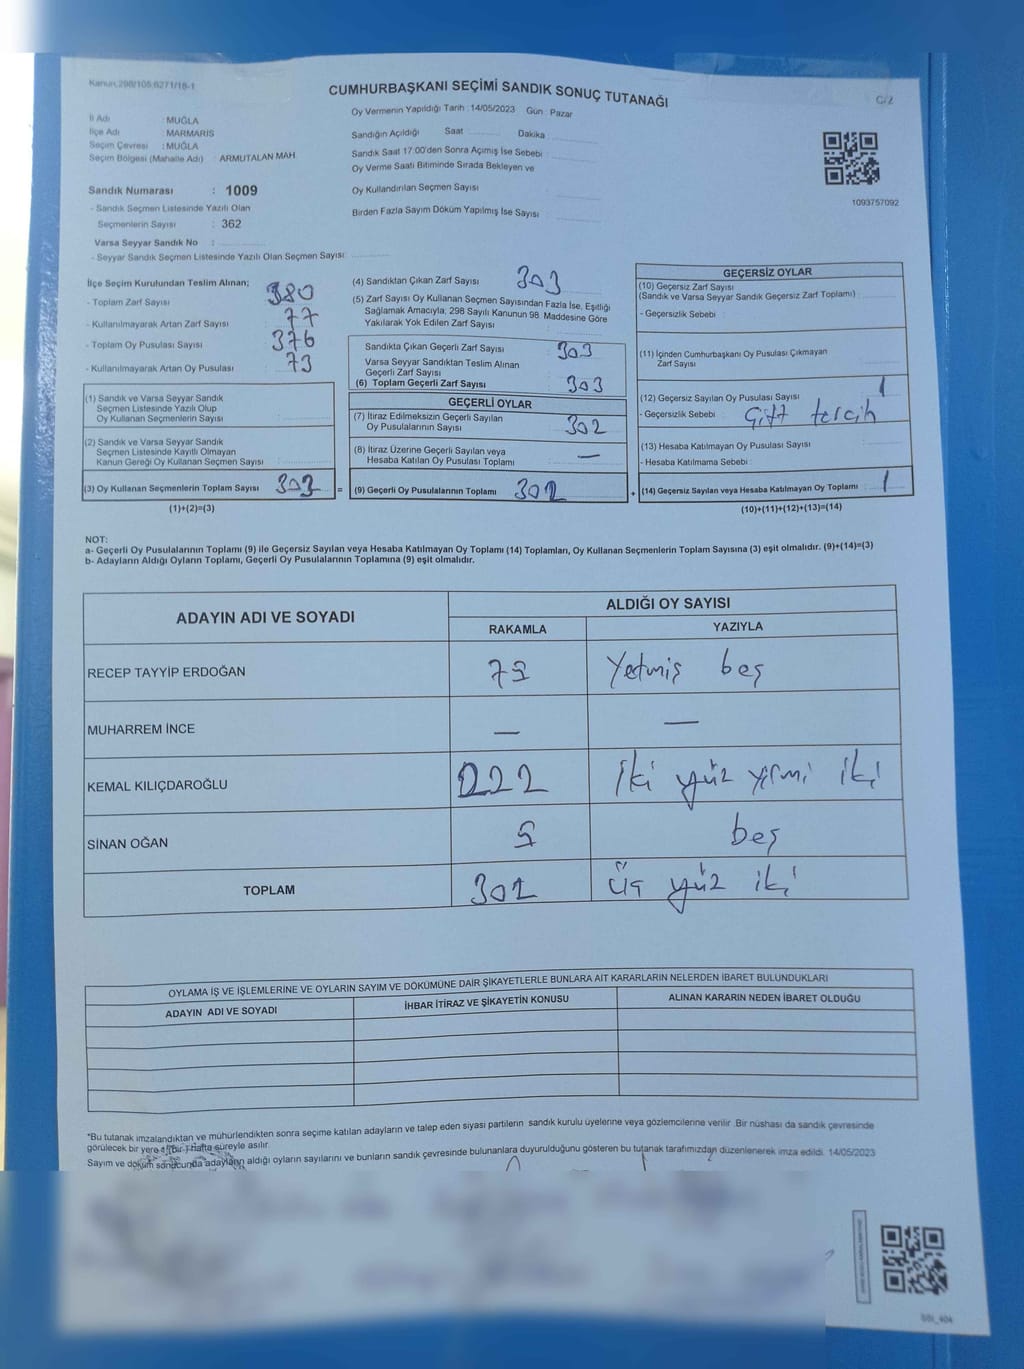 Kanun:298/105:6271/18-1
CUMHURBAŞKANI SEÇİMİ SANDIK SONUÇ TUTANAĞI
C/2
Oy Vermenin Yapıldığı Tarih :14/05/2023 Gün Pazar
İl Adı : MUĞLA
İlçe Adı : MARMARİS
Seçim Çevresi : MUĞLA
Seçim Bölgesi (Mahalle Adı) : ARMUTALAN MAH.
Sandığın Açıldığı Saat Dakika
Sandık Saat 17.00'den Sonra Açımış İse Sebebi
Oy Verme Saati Bitiminde Sırada Bekleyen ve
Oy Kullandırılan Seçmen Sayısı
Birden Fazla Sayım Döküm Yapılmış İse Sayısı
1093757092
Sandık Numarası : 1009
- Sandık Seçmen Listesinde Yazılı Olan
Seçmenlerin Sayısı : 362
Varsa Seyyar Sandık No :
- Seyyar Sandık Seçmen Listesinde Yazılı Olan Seçmen Sayısı:
İlçe Seçim Kurulundan Teslim Alınan;
- Toplam Zarf Sayısı 380
- Kullanılmayarak Artan Zarf Sayısı 77
- Toplam Oy Pusulası Sayısı 376
- Kullanılmayarak Artan Oy Pusulası 73
(1) Sandık ve Varsa Seyyar Sandık
Seçmen Listesinde Yazılı Olup
Oy Kullanan Seçmenlerin Sayısı
(2) Sandık ve Varsa Seyyar Sandık
Seçmen Listesinde Kayıtlı Olmayan
Kanun Gereği Oy Kullanan Seçmen Sayısı
(3) Oy Kullanan Seçmenlerin Toplam Sayısı 303 =
(1)+(2)=(3)
(4) Sandıktan Çıkan Zarf Sayısı 303
(5) Zarf Sayısı Oy Kullanan Seçmen Sayısından Fazla İse, Eşitliği
Sağlamak Amacıyla, 298 Sayılı Kanunun 98. Maddesine Göre
Yakılarak Yok Edilen Zarf Sayısı
Sandıkta Çıkan Geçerli Zarf Sayısı 303
Varsa Seyyar Sandıktan Teslim Alınan
Geçerli Zarf Sayısı
(6) Toplam Geçerli Zarf Sayısı 303
GEÇERLİ OYLAR
(7) İtiraz Edilmeksizin Geçerli Sayılan
Oy Pusulalarının Sayısı 302
(8) İtiraz Üzerine Geçerli Sayılan veya
Hesaba Katılan Oy Pusulası Toplamı —
(9) Geçerli Oy Pusulalarının Toplamı 302 +
GEÇERSİZ OYLAR
(10) Geçersiz Zarf Sayısı
(Sandık ve Varsa Seyyar Sandık Geçersiz Zarf Toplamı)
- Geçersizlik Sebebi
(11) İçinden Cumhurbaşkanı Oy Pusulası Çıkmayan
Zarf Sayısı
(12) Geçersiz Sayılan Oy Pusulası Sayısı 1
- Geçersizlik Sebebi : Çift tercih
(13) Hesaba Katılmayan Oy Pusulası Sayısı
- Hesaba Katılmama Sebebi
(14) Geçersiz Sayılan veya Hesaba Katılmayan Oy Toplamı 1
(10)+(11)+(12)+(13)=(14)
NOT:
a- Geçerli Oy Pusulalarının Toplamı (9) ile Geçersiz Sayılan veya Hesaba Katılmayan Oy Toplamı (14) Toplamları, Oy Kullanan Seçmenlerin Toplam Sayısına (3) eşit olmalıdır. (9)+(14)=(3)
b- Adayların Aldığı Oyların Toplamı, Geçerli Oy Pusulalarının Toplamına (9) eşit olmalıdır.
ADAYIN ADI VE SOYADI ALDIĞI OY SAYISI
RAKAMLA YAZIYLA
RECEP TAYYİP ERDOĞAN 75 Yetmiş beş
MUHARREM İNCE — —
KEMAL KILIÇDAROĞLU 222 İki yüz yirmi iki
SİNAN OĞAN 5 beş
TOPLAM 302 Üç yüz iki
OYLAMA İŞ VE İŞLEMLERİNE VE OYLARIN SAYIM VE DÖKÜMÜNE DAİR ŞİKAYETLERLE BUNLARA AİT KARARLARIN NELERDEN İBARET BULUNDUKLARI
ADAYIN ADI VE SOYADI İHBAR İTİRAZ VE ŞİKAYETİN KONUSU ALINAN KARARIN NEDEN İBARET OLDUĞU
*Bu tutanak imzalandıktan ve mühürlendikten sonra seçime katılan adayların ve talep eden siyasi partilerin sandık kurulu üyelerine veya gözlemcilerine verilir .Bir nüshası da sandık çevresinde
görülecek bir yere 1 (Bir) hafta süreyle asılır.
Sayım ve döküm sonucunda adayların aldığı oyların sayılarını ve bunların sandık çevresinde bulunanlara duyurulduğunu gösteren bu tutanak tarafımızdan düzenlenerek imza edildi. 14/05/2023